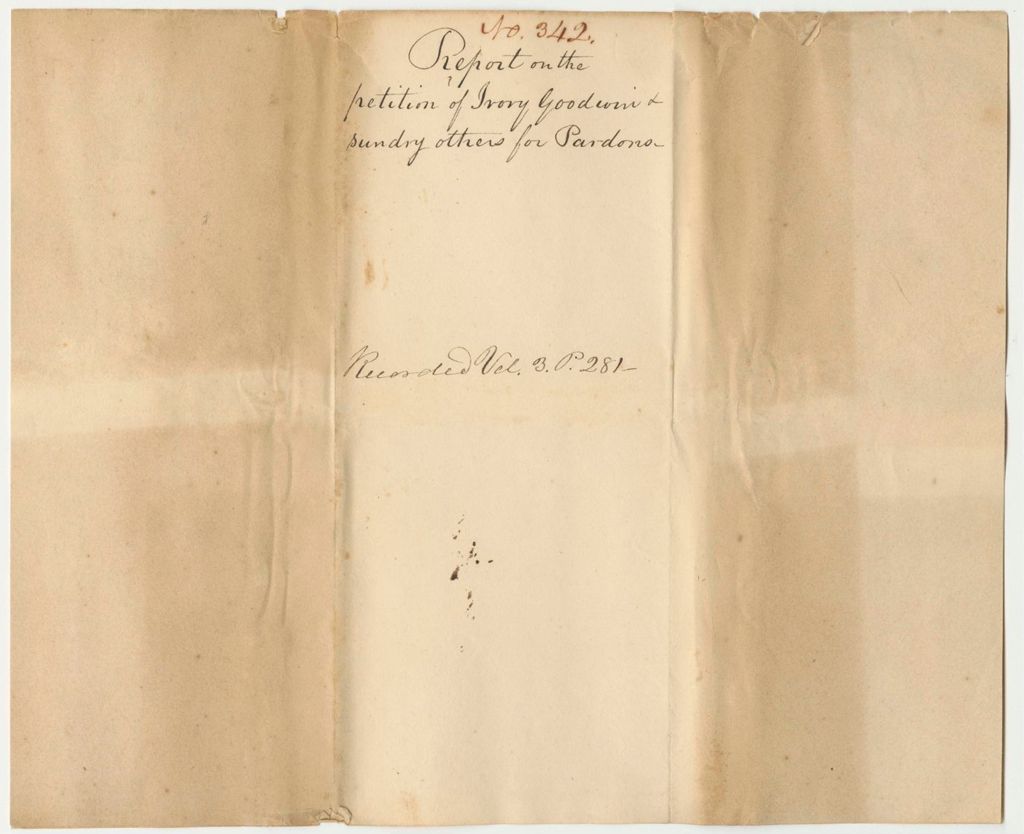 No. 342.
Report on the
petition of Ivory Goodwin &
sundry others for Pardons
Recorded Vol. 3. P. 281